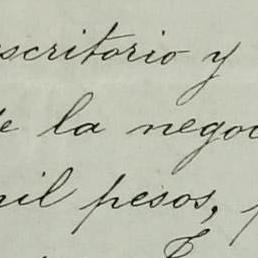 scritorio y
de la negoc
mil pesos,